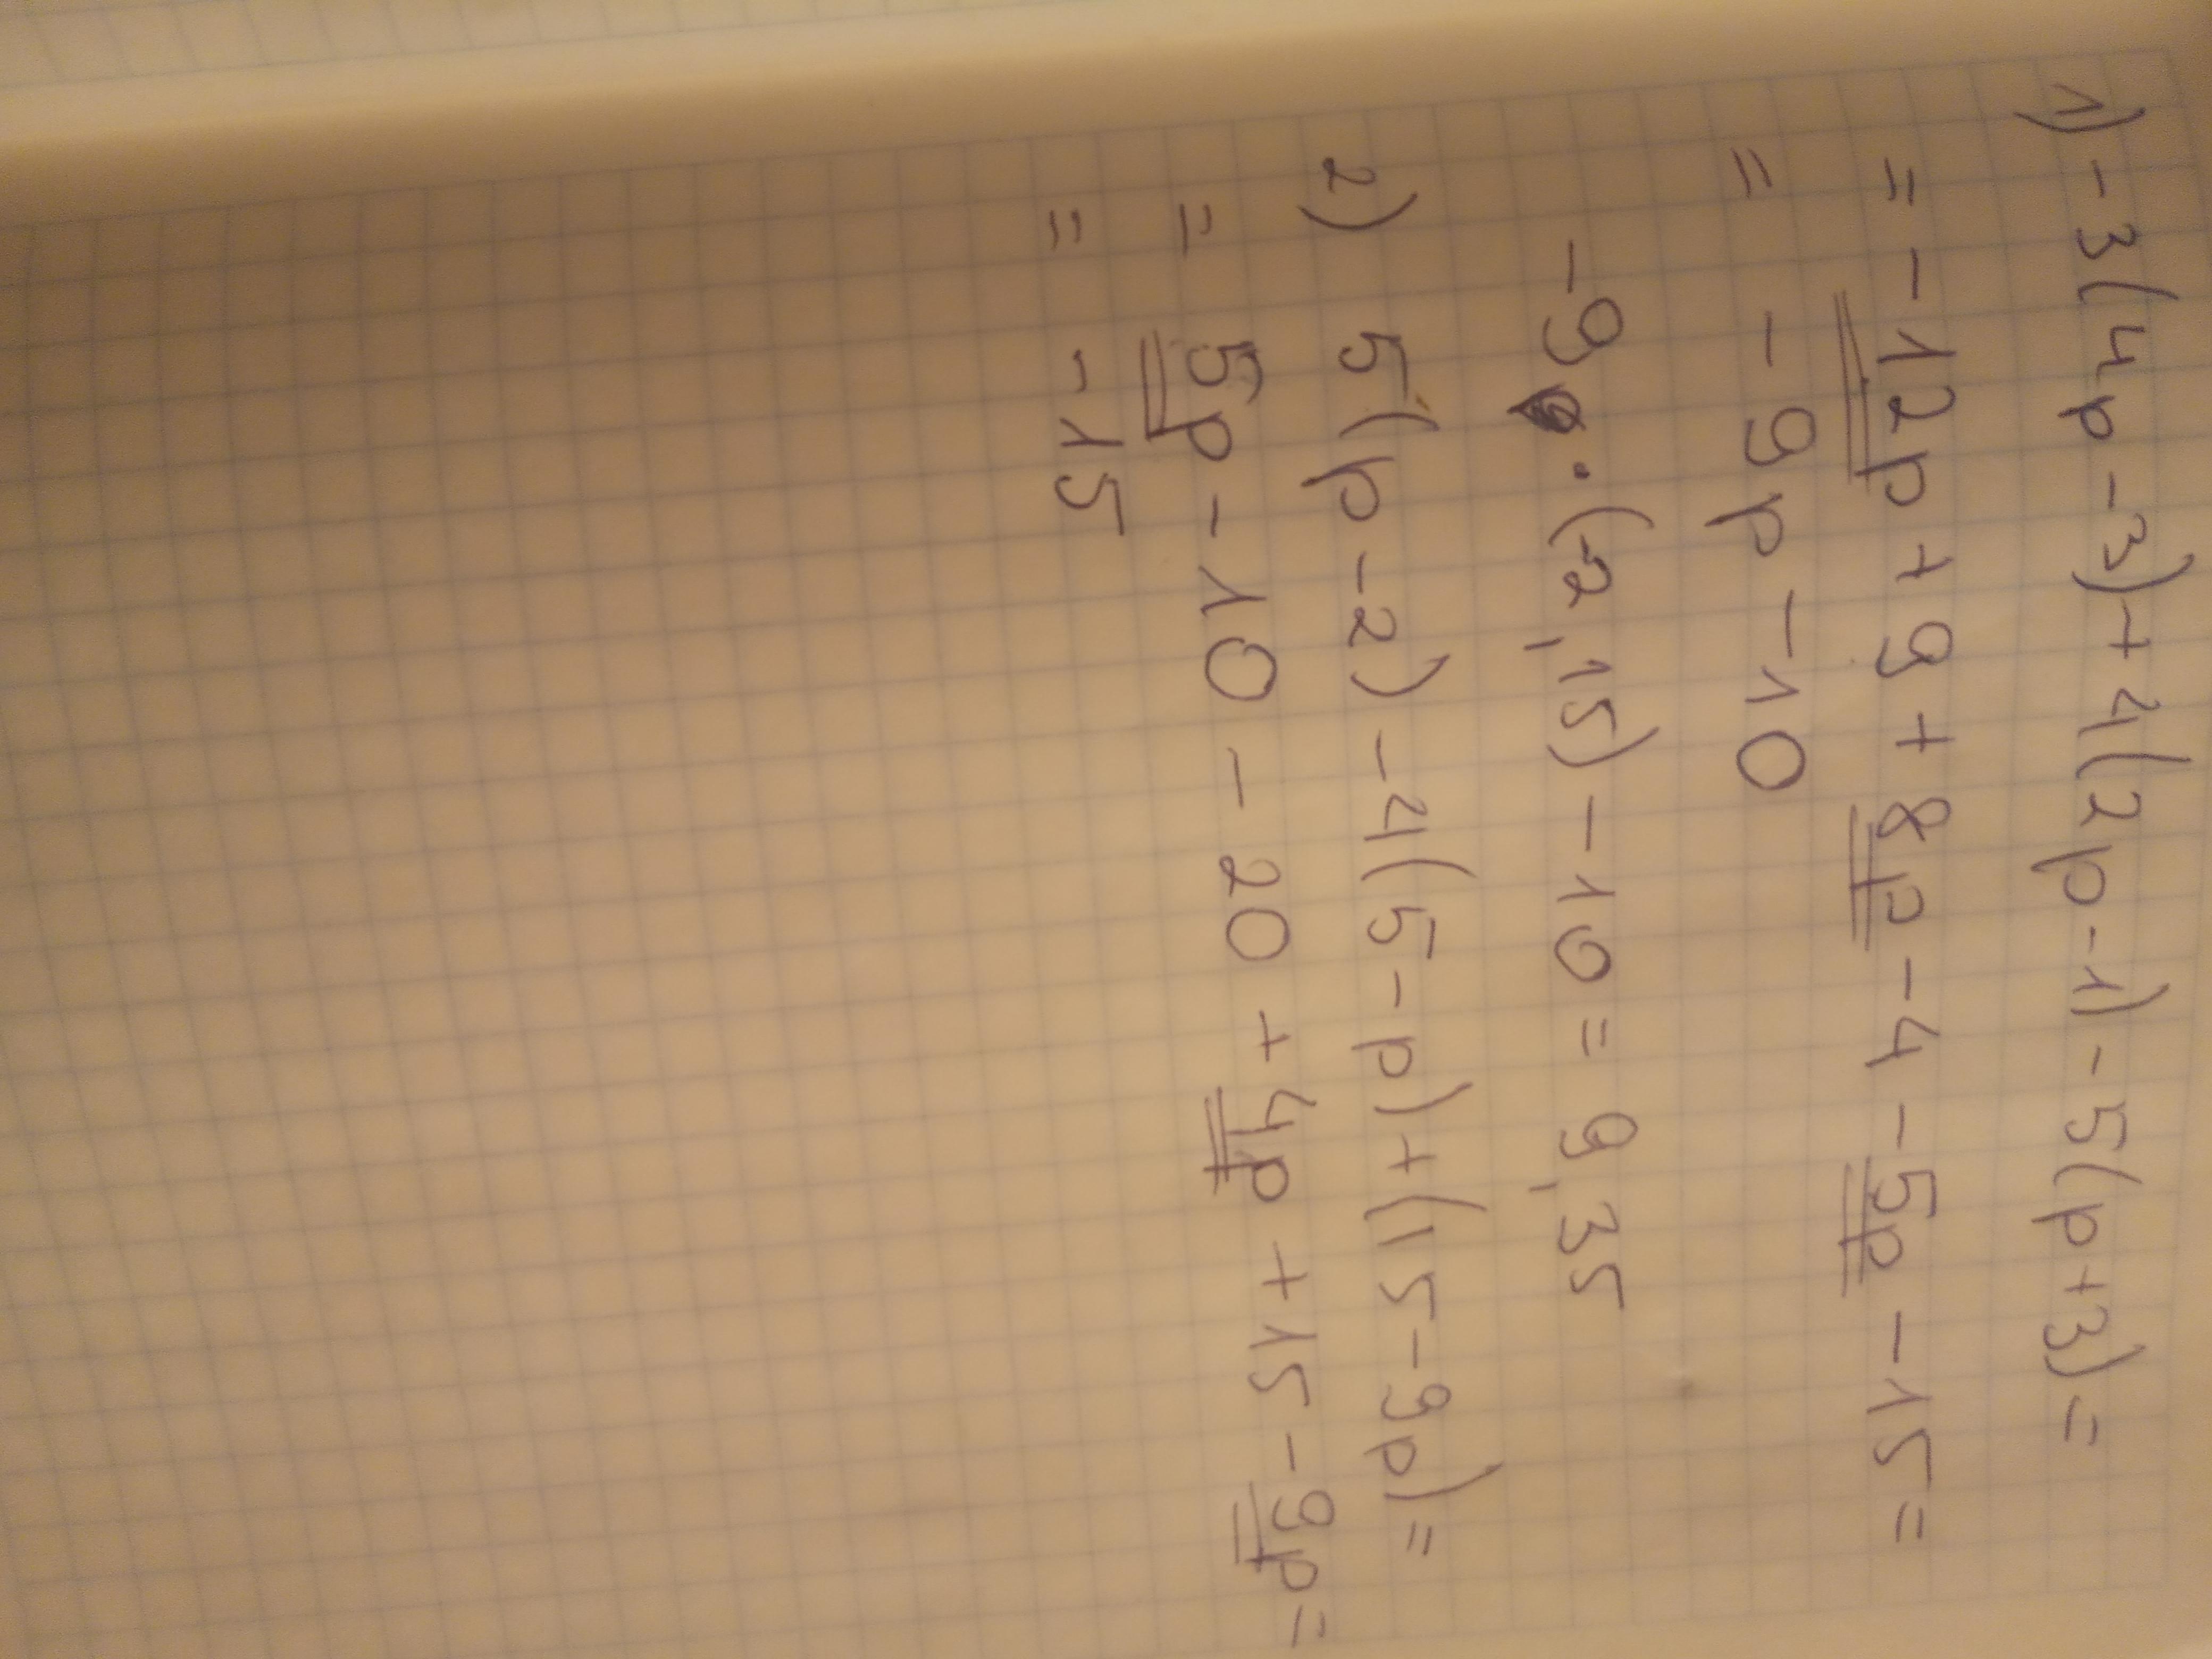 1) -3(4p-3)+4(2p-1)-5(p+3)=
= -12p+9+8p-4-5p-15=
= -9p-10
-9·(-2,15)-10=9,35
2) 5(p-2)-4(5-p)+(15-9p)=
= 5p-10-20+4p+15-9p=
= -15